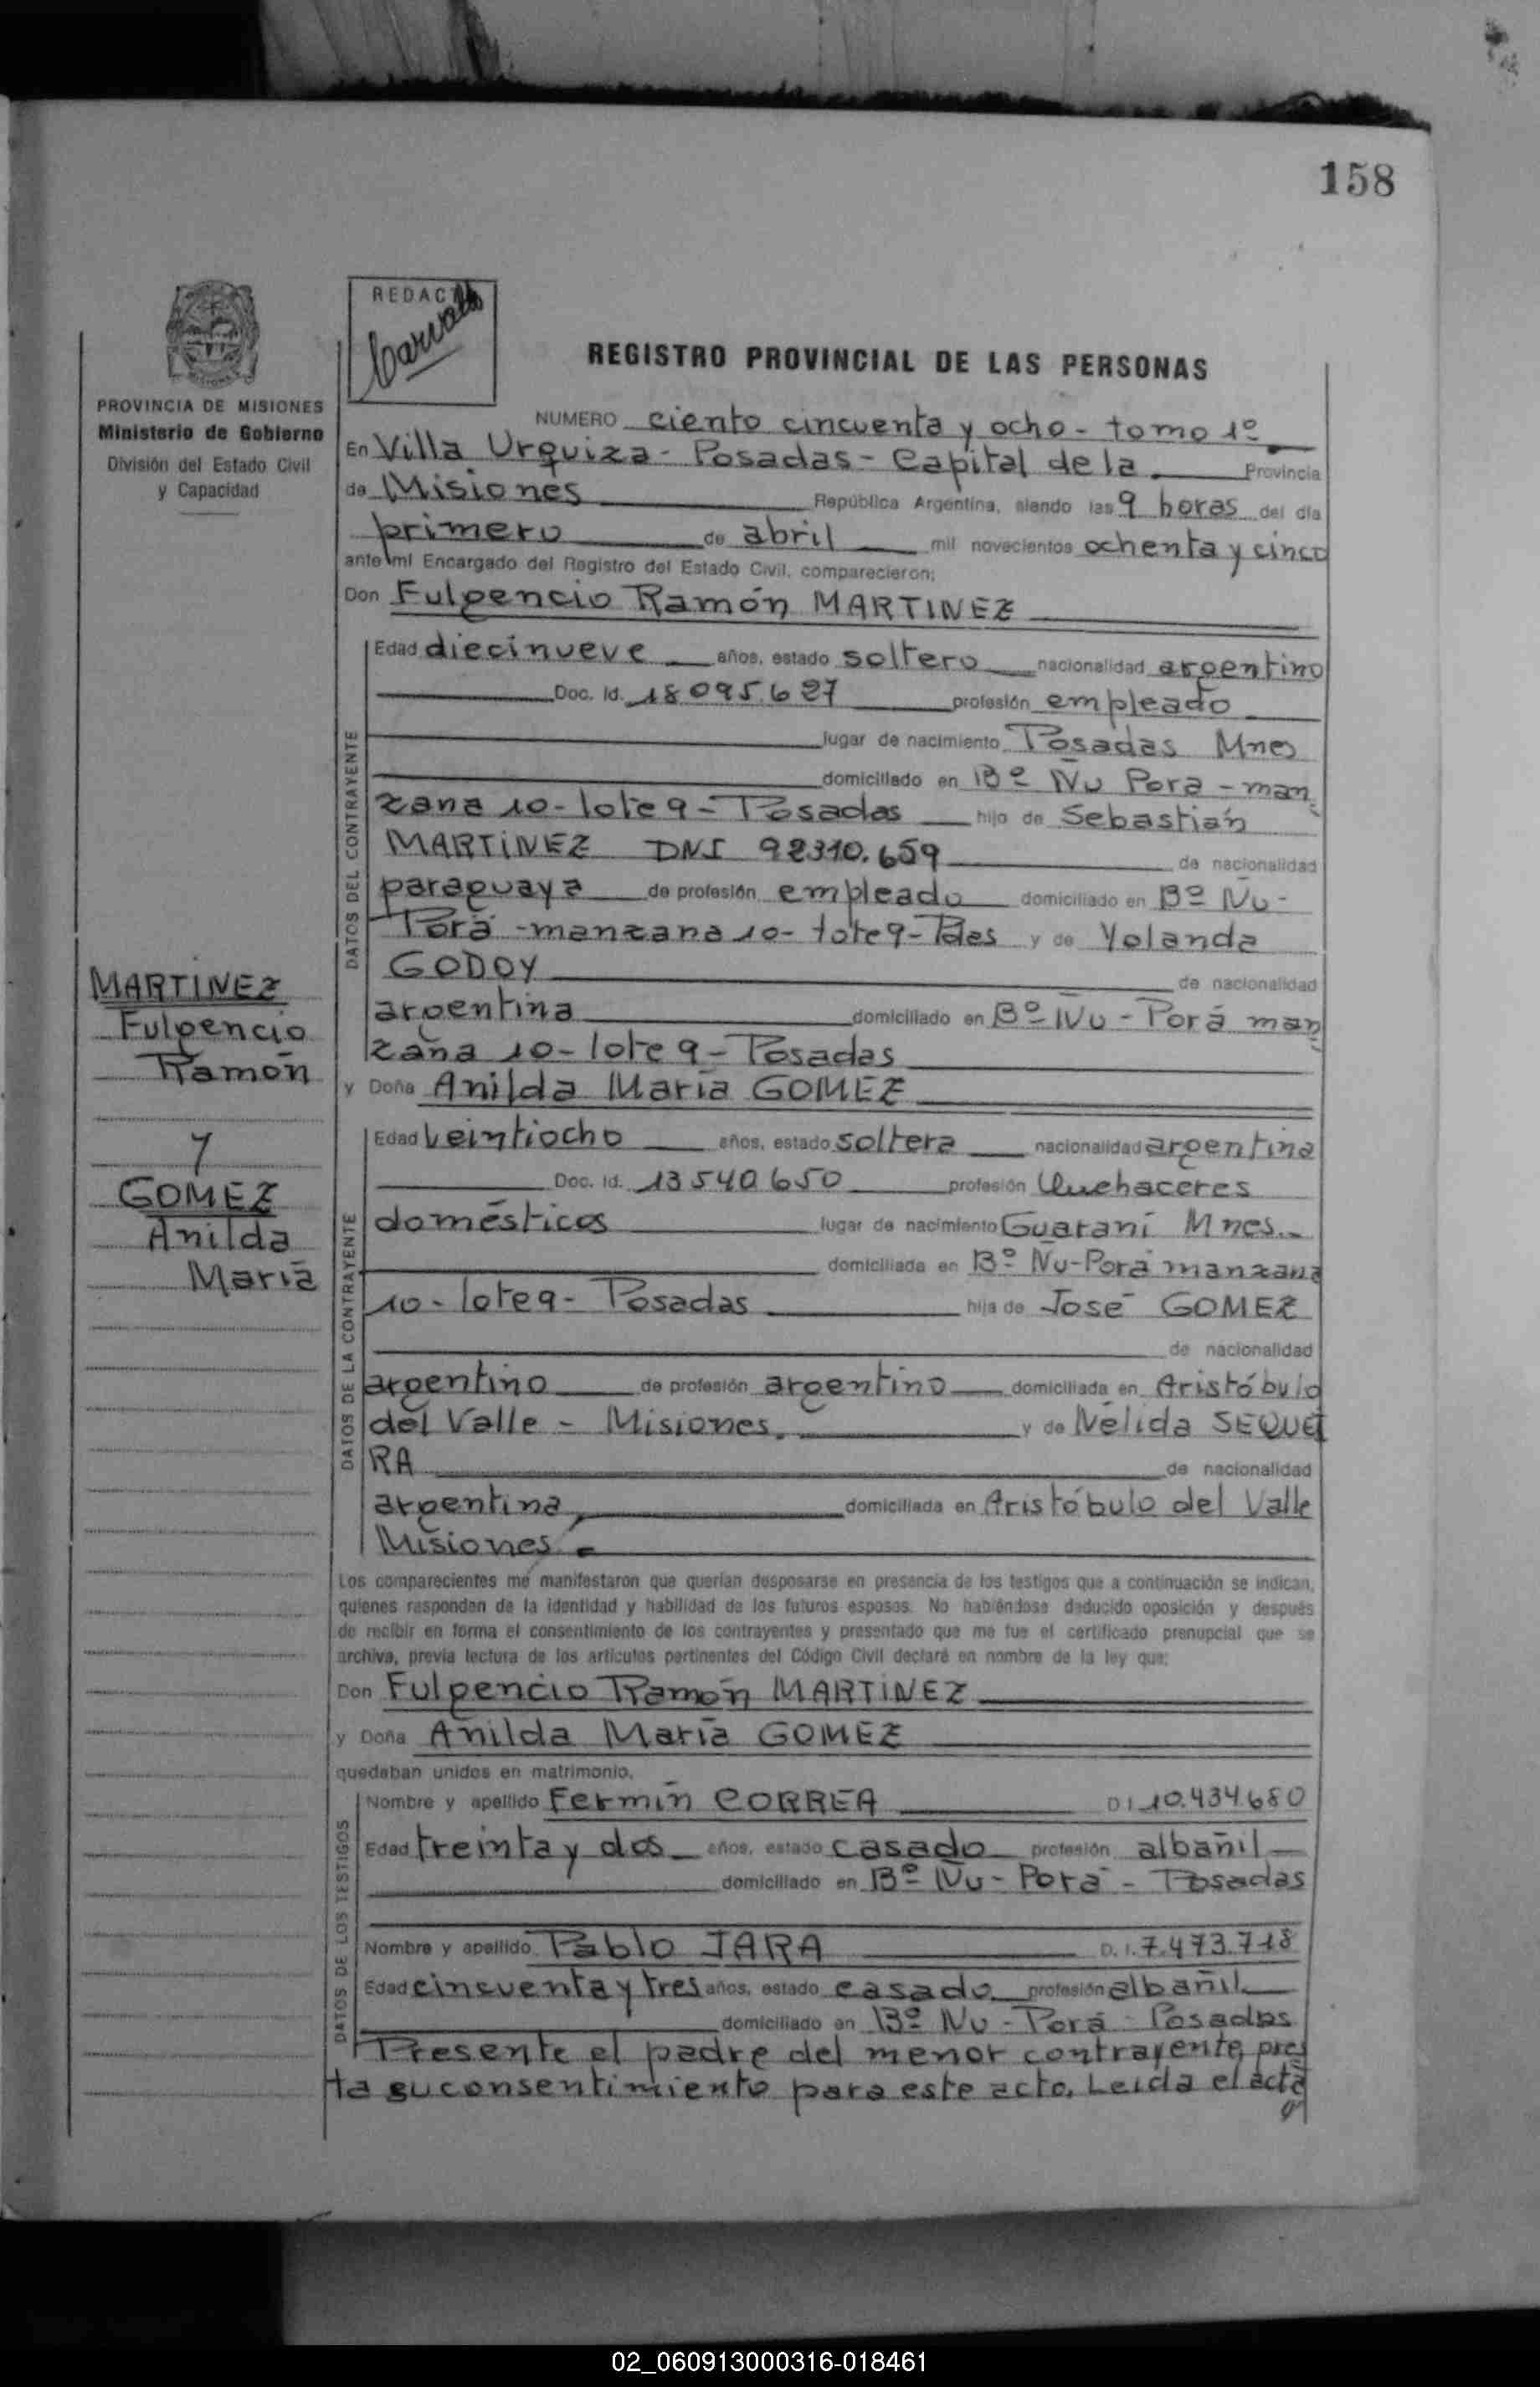 158
REDACTÓ
Carvalh
PROVINCIA DE MISIONES
Ministerio de Gobierno
División del Estado Civil
y Capacidad
REGISTRO PROVINCIAL DE LAS PERSONAS
NUMERO ciento cincuenta y ocho - tomo 1º
En Villa Urquiza - Posadas - Capital de la Provincia
de Misiones República Argentina, siendo las 9 horas del día
primero de abril mil novecientos ochenta y cinco
ante mi Encargado del Registro del Estado Civil, comparecieron;
Don Fulgencio Ramón MARTINEZ
DATOS DEL CONTRAYENTE
Edad diecinueve años, estado soltero nacionalidad argentino
Doc. Id. 18.095.627 profesión empleado
lugar de nacimiento Posadas Mnes
domiciliado en Bº Ñu Porá - man
zana 10 - lote 9 - Posadas hijo de Sebastián
MARTINEZ DNI 92310.659 de nacionalidad
paraguaya de profesión empleado domiciliado en Bº Ñu -
Porá - manzana 10 - lote 9 - Pdas y de Yolanda
GODOY de nacionalidad
argentina domiciliado en Bº Ñu - Porá man
zana 10 - lote 9 - Posadas
MARTINEZ
Fulgencio
Ramón
y
GOMEZ
Anilda
María
y Doña Anilda María GOMEZ
DATOS DE LA CONTRAYENTE
Edad veintiocho años, estado soltera nacionalidad argentina
Doc. Id. 13540650 profesión Quehaceres
domésticos lugar de nacimiento Guaraní Mnes.-
domiciliada en Bº Ñu - Porá manzana
10 - lote 9 - Posadas hija de José GOMEZ
de nacionalidad
argentino de profesión argentino domiciliada en Aristóbulo
del Valle - Misiones. y de Nélida SEQUEI
RA de nacionalidad
argentina, domiciliada en Aristóbulo del Valle
Misiones.-
Los comparecientes me manifestaron que querían desposarse en presencia de los testigos que a continuación se indican,
quienes responden de la identidad y habilidad de los futuros esposos. No habiéndose deducido oposición y después
de recibir en forma el consentimiento de los contrayentes y presentado que me fue el certificado prenupcial que se
archiva, previa lectura de los artículos pertinentes del Código Civil declaré en nombre de la ley que:
Don Fulgencio Ramón MARTINEZ
y Doña Anilda María GOMEZ
quedaban unidos en matrimonio.
DATOS DE LOS TESTIGOS
Nombre y apellido Fermín CORREA D.I. 10.434.680
Edad treinta y dos años, estado casado profesión albañil
domiciliado en Bº Ñu - Porá - Posadas
Nombre y apellido Pablo JARA D.I. 7.473.718
Edad cincuenta y tres años, estado casado profesión albañil
domiciliado en Bº Ñu - Porá - Posadas
Presente el padre del menor contrayente, pres
ta su consentimiento para este acto. Leída el acta
02_060913000316-018461